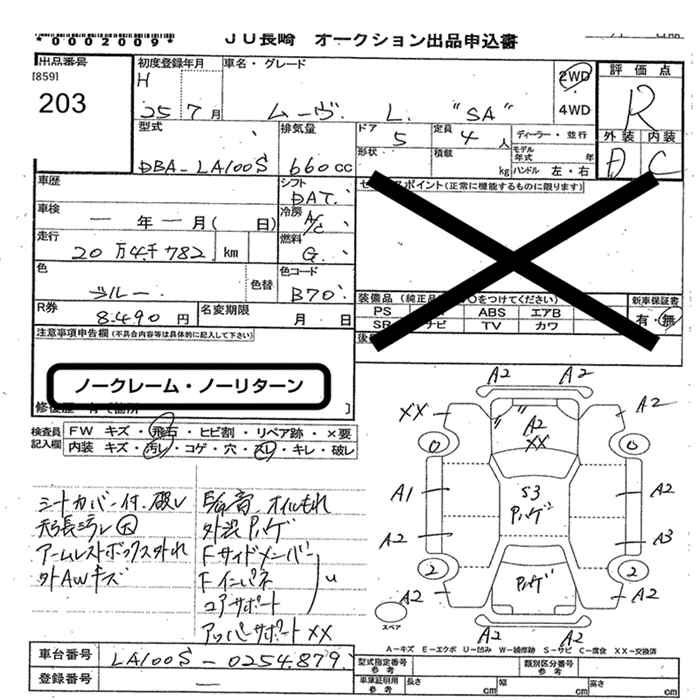 *0002009* JU長崎 オークション出品申込書
出品番号 初度登録年月 車名・グレード 評価点
[859] H 2WD
203 25 7月 ムーヴ L "SA" 4WD R
型式 排気量 ドア 5 定員 4人 ディーラー・並行 外装 内装
DBA-LA100S 660cc 形状 積載 kg モデル年式 年 ハンドル 左・右 D C
車歴 シフト DAT ポイント(正常に機能するものに限ります)
車検 ー年ー月( 日) 冷房 A/C
走行 20万4千782 km 燃料 G
色 ブルー 色替 色コード B70 装備品 をつけてください) 新車保証書
R券 8.490円 名変期限 月 日 PS ABS エアB 有・無
注意事項申告欄(不具合内容等は具体的に記入して下さい) SR ナビ TV カワ
ノークレーム・ノーリターン
検査員 FW キズ・飛石・ヒビ割・リペア跡・×要
記入欄 内装 キズ・汚レ・コゲ・穴・スレ・キレ・破レ
シートカバー付.破レ
天張汚レ大
アームレストボックス外れ
外AWキズ
E/G異音 オイルもれ
外装 Pハゲ
Fサイドメンバー
Fインパネ U
コアサポート
アッパーサポートXX
A2 A2
XX A2 XX A2
0 0
A1 S3 Pハゲ A2
A2 A3
2 Pハゲ 2
A2 A2
A2 A2
スペア
A-キズ E-エクボ U-凹み W-補修跡 S-サビ C-腐食 XX-交換済
車台番号 LA100S-0254879 型式指定番号 参考 類別区分番号 参考
登録番号 ー 車庫証明用 参考 長さ cm 幅 cm 高さ cm